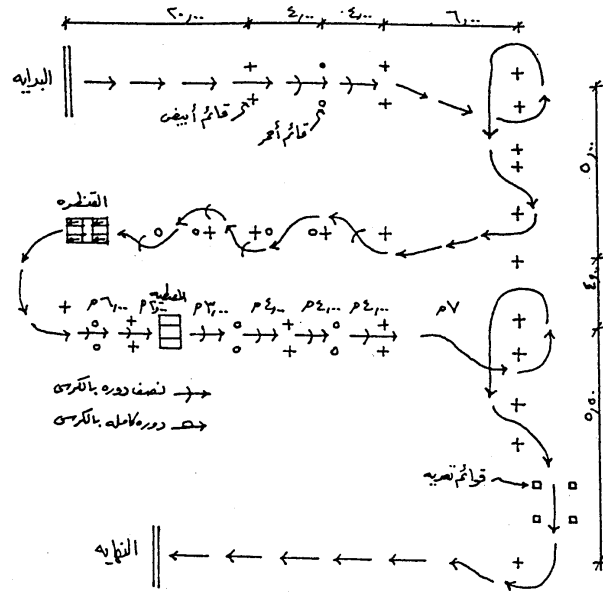 ٢٠,٠٠ ٤,٠٠ ٤,٠٠ ٦,٠٠
البدايه
قائم أبيض
قائم أحمر
٥,٠٠
القنطره
٤,٠٠
٦,٠٠م ٢,٠٠م المطبه ٣,٠٠م ٤,٠٠م ٤,٠٠م ٤,٠٠م ٧م
نصف دوره بالكرسى
دوره كامله بالكرسى
٥,٥٠
قوائم تعديه
النهايه